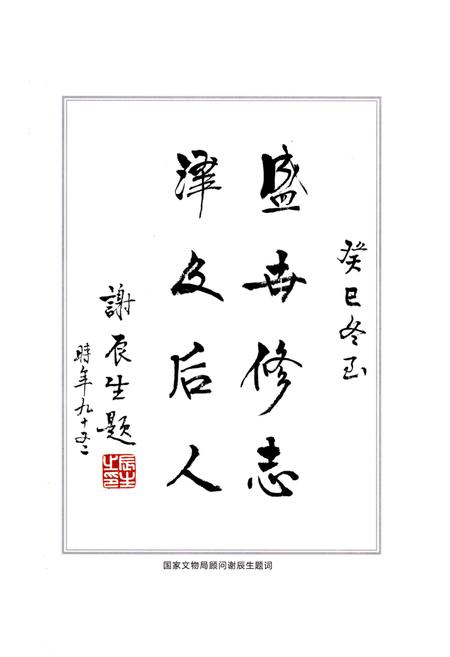 癸巳冬至
盛世修志
泽及后人
謝辰生题
時年九十又二
辰生之印
国家文物局顾问谢辰生题词